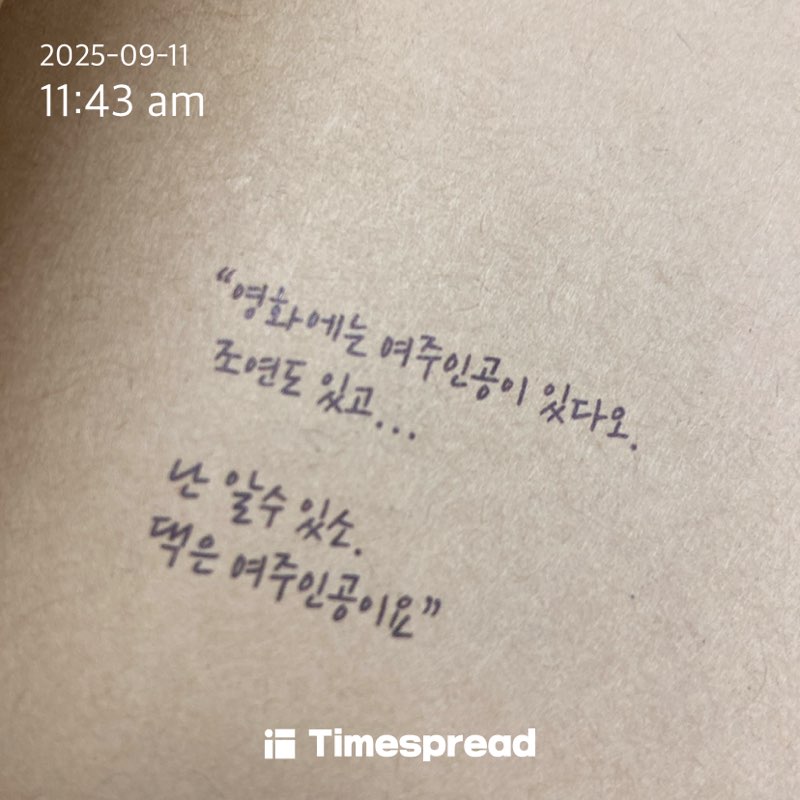 2025-09-11
11:43 am
“영화에는 여주인공이 있다오.
조연도 있고...
난 알수 있소.
댁은 여주인공이요”
Timespread